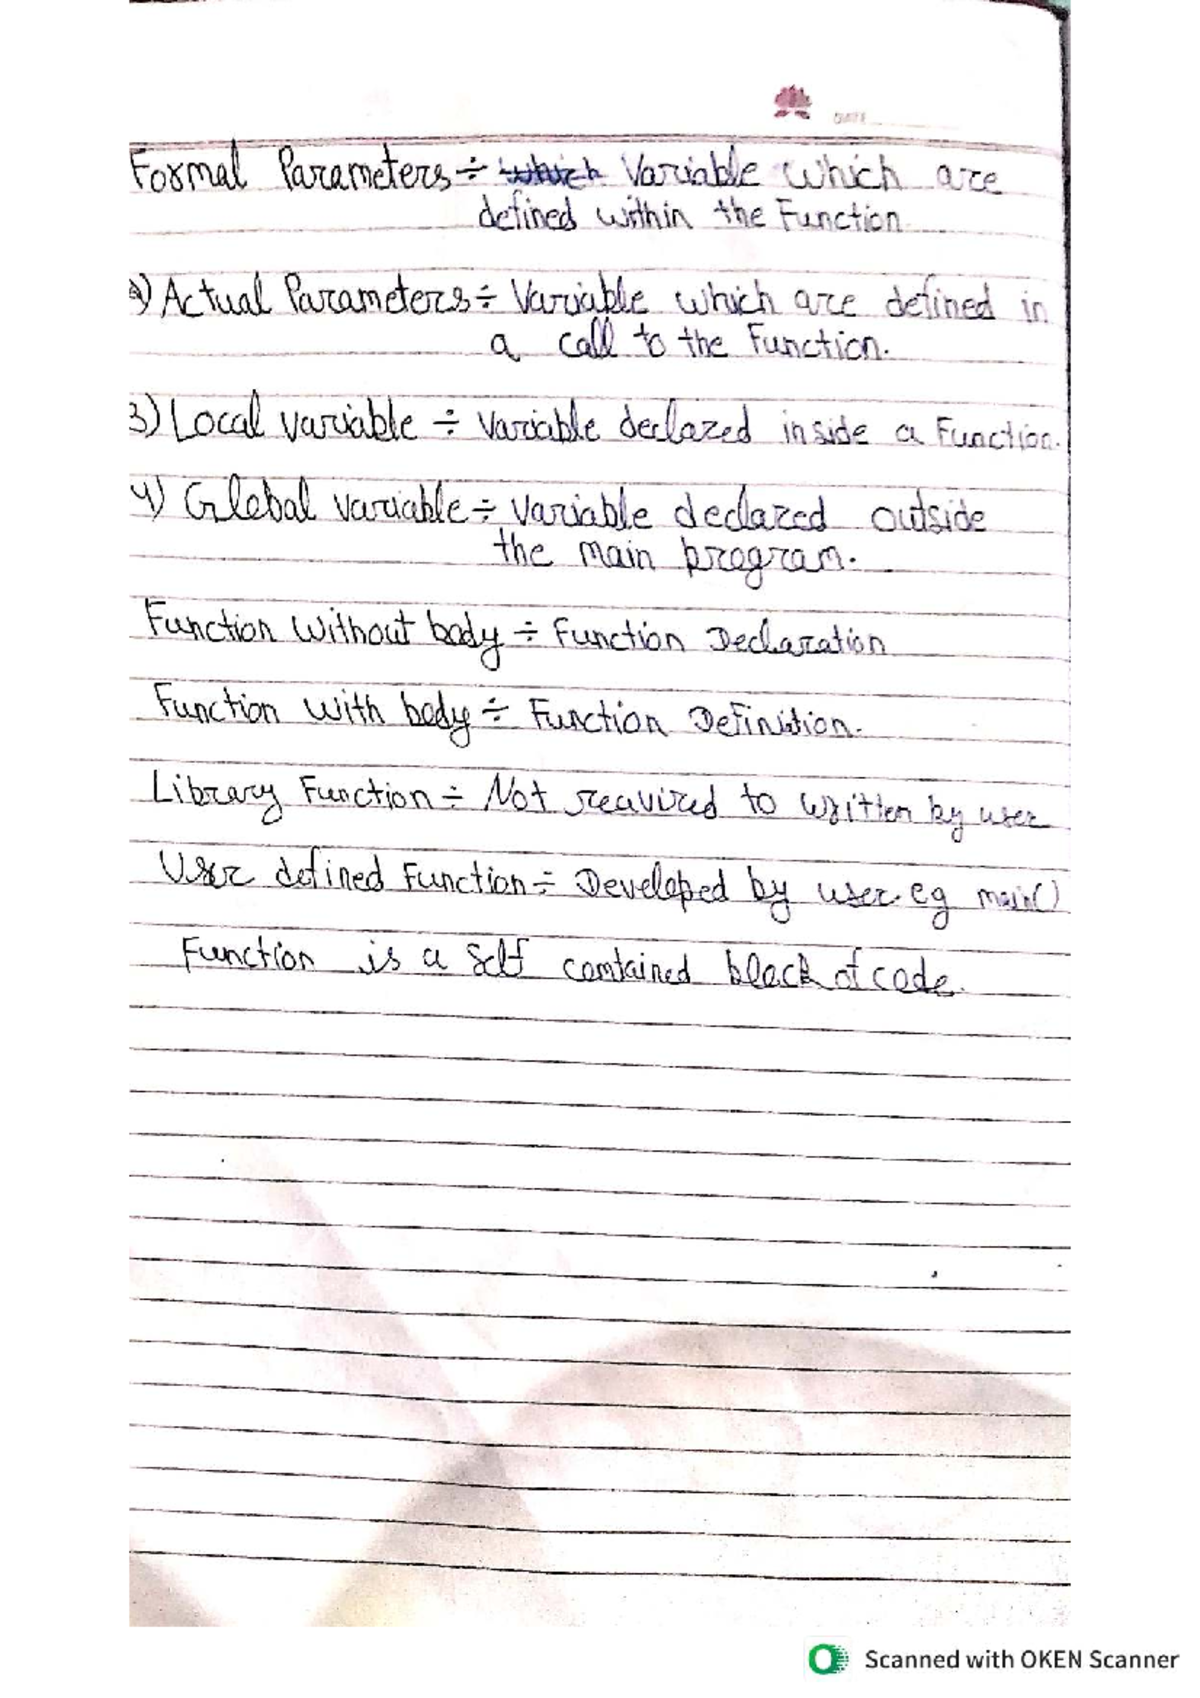 DATE
Formal Parameters ÷ which Variable which are
defined within the Function
2) Actual Parameters ÷ Variable which are defined in
a call to the Function.
3) Local variable ÷ Variable declared inside a Function.
4) Global variable ÷ Variable declared outside
the main program.
Function Without body ÷ Function Declaration
Function with body ÷ Function Definition.
Library Function ÷ Not reavired to written by user
User defined Function ÷ Developed by user. eg main()
Function is a self contained block of code.
Scanned with OKEN Scanner